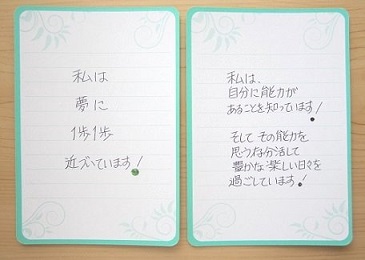 私は
夢に
1歩1歩
近づいています!
私は、
自分に能力が
あることを知っています!
そして その能力を
思うな分活して
豊かな楽しい日々を
過ごしています!